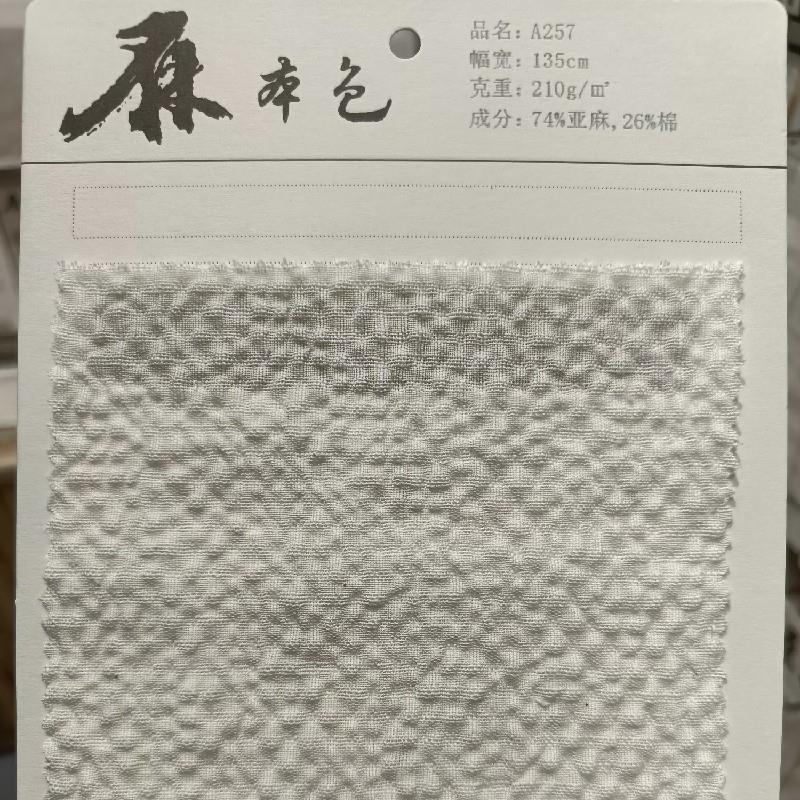 麻本色
品名: A257
幅宽: 135cm
克重: 210g/㎡
成分: 74%亚麻,26%棉